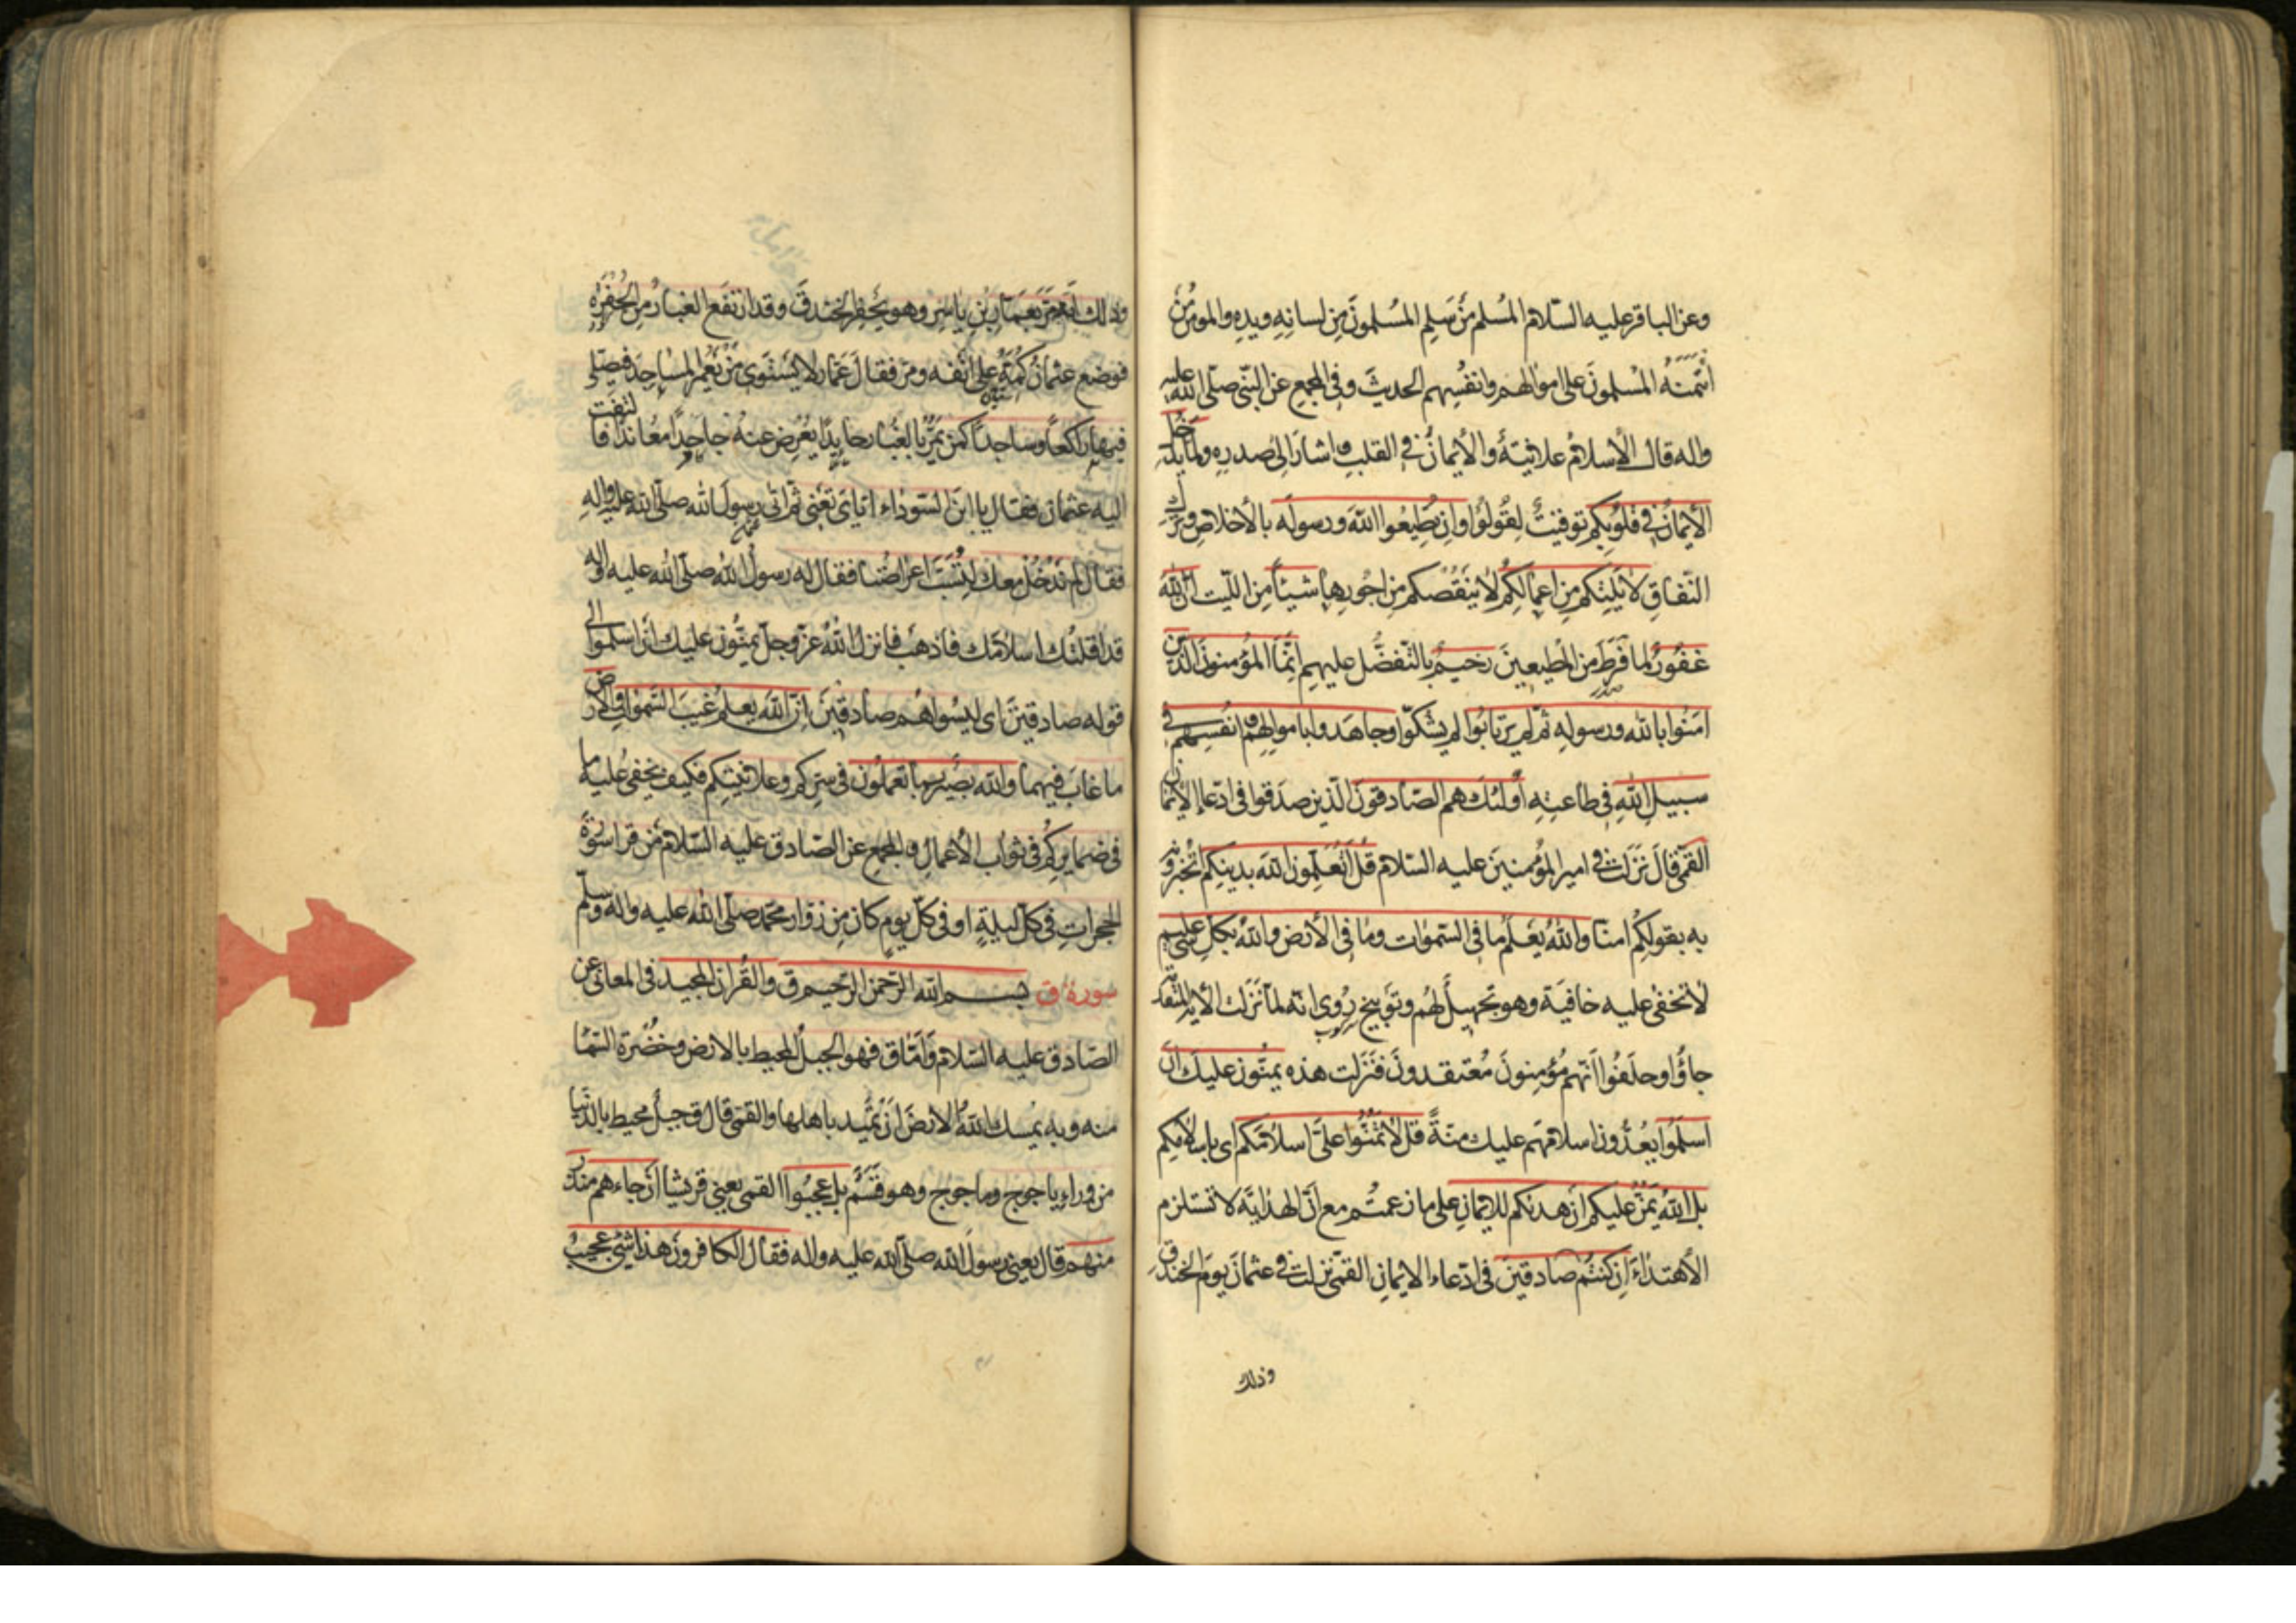 وعن الباقر عليه السّلام المُسلم مَن سَلِم المُسلمونَ مِن لسانِهِ ويدِهِ والمؤمن مَن
ائتَمنَهُ المُسلمونَ على اموالهم وانفُسِهم الحديثَ وفى المجمع عن النّبى صلّى الله عليه
واله قال الإسلامُ علانيَةٌ والأيمانُ فى القلبِ واشارَ الى صدرِهِ ولمّا يَدخُلِ
الأيمانُ فى قلوبِكم توقيتٌ لِقُولُوا وان تُطِيعُوا اللهَ ورسولَه بالأخلاصِ وتركِ
النّفاقِ لا يَلِتكم مِن اعمالِكُم لا يَنقُصكم مِن اجورِها شيئاً مِن اللّيت انّ اللهَ
غفُورٌ لما فَرَطَ مِن المُطيعينَ رَحيمٌ بالتّفضُّل عليهم اِنَّمَا المُؤمنونَ الّذين
امَنُوا بالله ورسولِهِ ثمّ لم يَرتابُوا لم يشكّوا وجاهَدوا باموالِهم وانفُسِهم فى
سبيلِ اللهِ فى طاعتِهِ اُولئكَ هم الصّادقونَ الّذين صدَقوا فى ادّعاءِ الأيمان
القمّى قال نَزَلت فى امير المؤمنينَ عليه السّلام قُل اَتُعَلِّمونَ اللهَ بدينِكم اتُخبرونه
به بقولِكُم امنّا واللهُ يَعلَمُ ما فى السّموات وما فى الأرض واللهُ بكلّ شىء عليم
لا تخفى عليه خافيَة وهو تجهيلٌ لهُم وتوبيخ رُوى انّه لمّا نَزَلت الأية المتقدّمة
جاؤُا وحلَفُوا اَنّهم مُؤمِنونَ مُعتقدونَ فَنَزَلت هذه يمنّون عليك ان
اسلَمُوا يَعُدُّونَ اسلامَهم عليك مِنّةً قل لا تَمُنُّوا علىَّ اسلامَكم اى باسلامِكم
بل اللهُ يَمُنُّ عليكم ان هديكم للايمانِ على ما زعمتُم مع انّ الهدايَة لا تستلزم
الأهتداءَ ان كنتُم صادقينَ فى ادّعاء الايمانِ القمّى نزلت فى عثمانَ يومَ الخندق
وذلك
وذلك انّه مَرّ بعَمّارِ بنِ ياسِر وهو يَحفِرُ الخندقَ وقد ارتفَع الغبارُ مِن الحُفرَةِ
فوضع عثمانُ كُمّهُ على انفه ومرّ فقال عَمّار لا يَستَوى مَن يَعمُر المساجِدَ فيصلّى
فيها راكعاً وساجداً كمَن يَمرّ بالغُبار حايِداً يُعرِض عنهُ جاحِداً معانداً فالتفت
اليه عثمان فقال يا ابنَ السّوداء ايّاىَ تعنى ثمّ اتى رسولَ الله صلّى الله عليه واله
فقال لم نَدخُل معك لِتُسَبَّ اعراضُنا فقال له رسولُ الله صلّى الله عليه واله
قد اقلتُك اسلامَك فاذهَب فانزلَ اللهُ عزّوجلّ يمنّون عليك ان اسلموا الى
قوله صادقينَ اى ليسُوا هُم صادقينَ انّ اللهَ يعلم غيبَ السّموات والأرض
ما غابَ فيهما واللهُ بصيرٌ بما تعملون فى سرّكم وعلانيتِكم فكيف يخفى عليه ما
فى ضمايركُم فى ثواب الأعمالِ والمجمع عن الصّادق عليه السّلام مَن قرا سورة
الحجراتِ فى كلّ ليلةٍ او فى كلّ يومٍ كان مِن زوّار محمّد صلّى الله عليه واله وسلّم
سورة ق بسم الله الرّحمن الرّحيم ق والقُرانِ المجيد فى المعانى عن
الصّادق عليه السّلام وَامّا ق فهو الجبلُ المحيط بالارض وخُضرة السّما
منه وبه يُمسِك اللهُ الارضَ ان تميد باهلها والقمّى قال ق جبلٌ محيط بالدّنيا
من وراءِ ياجوج وماجوج وهو قَسَمٌ بل عجِبُوا القمى يعنى قريشا ان جاءهم منذر
منهم قال يعنى رسولَ الله صلّى الله عليه واله فقال الكافرون هذا شىءٌ عجيبٌ